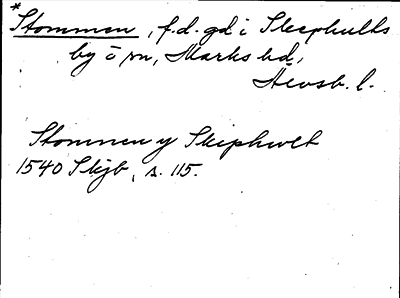 *Stommen, f.d. gd i Skephults
by o sn, Marks hd,
Älvsb. l.
Stommen y Skiphwlt
1540 Skjb, s. 115.